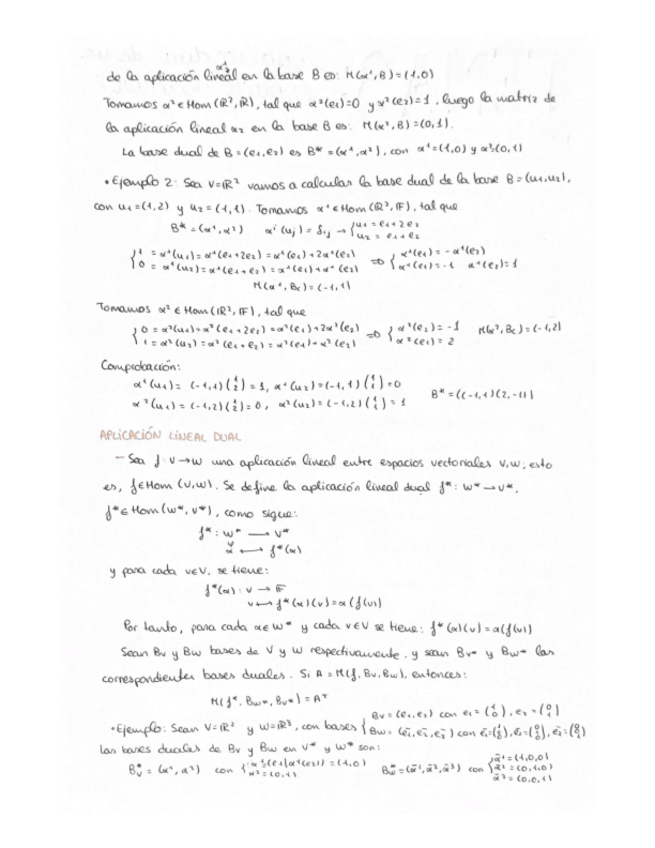 de la aplicación lineal α¹ en la base B es: M(α¹,B)=(1,0)
Tomamos α² ∈ Hom(ℝ²,ℝ), tal que α²(e₁)=0 y α²(e₂)=1, luego la matriz de
la aplicación lineal α₂ en la base B es: M(α²,B)=(0,1).
La base dual de B=(e₁,e₂) es B*=(α¹,α²), con α¹=(1,0) y α²=(0,1)
• Ejemplo 2: Sea V=ℝ² vamos a calcular la base dual de la base B=(u₁,u₂),
con u₁=(1,2) y u₂=(1,1). Tomamos α¹ ∈ Hom(ℝ²,𝔽), tal que
B*=(α¹,α²) αⁱ(uj)=δij → { u₁=e₁+2e₂
u₂=e₁+e₂
{ 1=α¹(u₁)=α¹(e₁+2e₂)=α¹(e₁)+2α¹(e₂) ⇒ { α¹(e₁)=-α¹(e₂)
0=α¹(u₂)=α¹(e₁+e₂)=α¹(e₁)+α¹(e₂) α¹(e₁)=-1 α¹(e₂)=1
M(α¹,Bc)=(-1,1)
Tomamos α² ∈ Hom(ℝ²,𝔽), tal que
{ 0=α²(u₁)=α²(e₁+2e₂)=α²(e₁)+2α²(e₂) ⇒ { α²(e₂)=-1 M(α²,Bc)=(-1,2)
1=α²(u₂)=α²(e₁+e₂)=α²(e₁)+α²(e₂) α²(e₁)=2
Comprobación:
α¹(u₁)=(-1,1)(1 2)=1, α¹(u₂)=(-1,1)(1 1)=0
α²(u₁)=(-1,2)(1 2)=0, α²(u₂)=(-1,2)(1 1)=1 B*=((-1,1)(2,-1))
APLICACIÓN LINEAL DUAL
– Sea f: V→W una aplicación lineal entre espacios vectoriales V,W; esto
es, f∈Hom(V,W). Se define la aplicación lineal dual f*: W*→V*,
f*∈Hom(W*,V*), como sigue:
f*: W* ⟶ V*
α ⟼ f*(α)
y para cada v∈V, se tiene:
f*(α): V → 𝔽
v ⟼ f*(α)(v)=α(f(v))
Por tanto, para cada α∈W* y cada v∈V se tiene: f*(α)(v)=α(f(v))
Sean Bv y Bw bases de V y W respectivamente, y sean Bv* y Bw* las
correspondientes bases duales. Si A=M(f,Bv,Bw), entonces:
M(f*,Bw*,Bv*)=Aᵀ
• Ejemplo: Sean V=ℝ² y W=ℝ³, con bases { Bv=(e₁,e₂) con e₁=(1 0), e₂=(0 1)
Bw=(ē₁,ē₂,ē₃) con ē₁=(1 0 0), ē₂=(0 1 0), ē₃=(0 0 1)
las bases duales de Bv y Bw en V* y W* son:
B*v=(α¹,α²) con { α¹=(α¹(e₁)α¹(e₂))=(1,0)
α²=(0,1)
B*w=(ᾱ¹,ᾱ²,ᾱ³) con { ᾱ¹=(1,0,0)
ᾱ²=(0,1,0)
ᾱ³=(0,0,1)